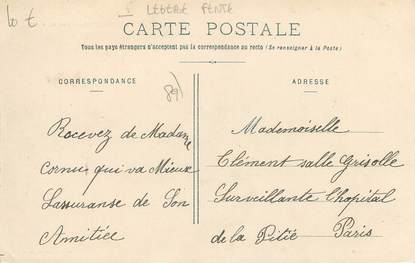 10 € LÉGÈRE FENTE
CARTE POSTALE
Tous les pays étrangers n'acceptent pas la correspondance au recto (Se renseigner à la Poste)
CORRESPONDANCE
89)
Recevez de Madame
Cornu qui va Mieux
Lassuranse de Son
Amitiee
ADRESSE
Mademoiselle
Clément salle Grisolle
Surveillante lhopital
de la Pitié Paris